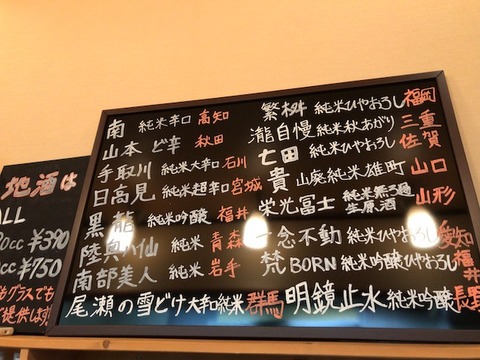 地酒は
ALL
0cc ¥390
0cc ¥750
グラスでも
ご提供します
南 純米辛口 高知
山本 ど辛 秋田
手取川 純米大辛口 石川
日高見 純米超辛口 宮城
黒龍 純米吟醸 福井
陸奥八仙 純米 青森
南部美人 純米 岩手
尾瀬の雪どけ 大辛口純米 群馬
繁桝 純米ひやおろし 福岡
瀧自慢 純米秋あがり 三重
七田 純米ひやおろし 佐賀
貴 山廃純米雄町 山口
栄光冨士 純米無濾過生原酒 山形
一念不動 純米ひやおろし 愛知
梵 BORN 純米吟醸ひやおろし 福井
明鏡止水 純米吟醸 長野